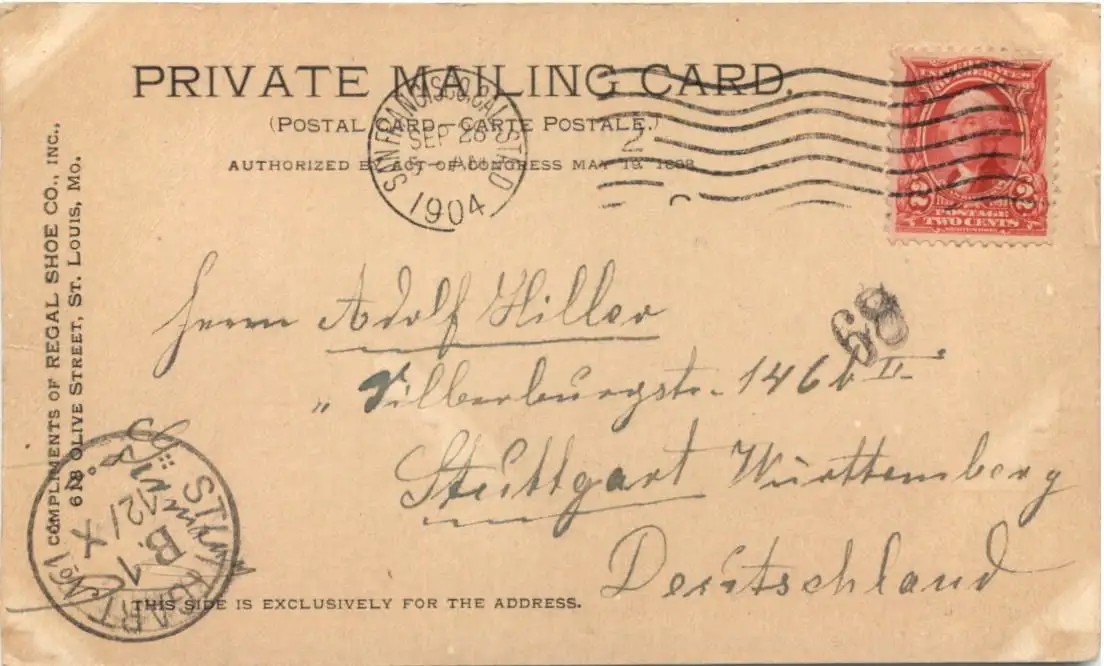 PRIVATE MAILING CARD.
(POSTAL CARD—CARTE POSTALE.)
AUTHORIZED BY ACT OF CONGRESS MAY 19, 1898
SAN FRANCISCO, CAL. STA. D
SEP 26
AM
1904
2
UNITED STATES
OF AMERICA
2 2
POSTAGE
TWO CENTS
COMPLIMENTS OF REGAL SHOE CO., INC.,
618 OLIVE STREET, ST. LOUIS, MO.
Herrn Adolf Hiller
89
" Silberburgstr. 146b II.
Stuttgart Württemberg
Deutschland
STUTTGART No 1
1 X
B. 12/
THIS SIDE IS EXCLUSIVELY FOR THE ADDRESS.